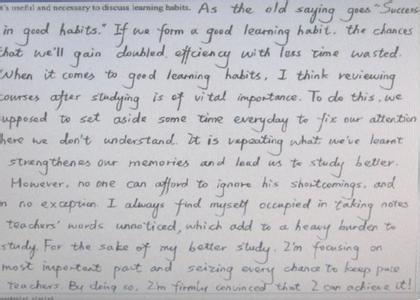 's useful and necessary to discuss learning habits. As the old saying goes "Success
in good habits." If we form a good learning habit, the chances
that we'll gain doubled efficiency with less time wasted.
When it comes to good learning habits, I think reviewing
courses after studying is of vital importance. To do this, we
upposed to set aside some time everyday to fix our attention
here we don't understand. It is repeating what we've learnt
strengthenes our memories and lead us to study better.
However, no one can afford to ignore his shortcomings, and
n no exception. I always find myself occupied in taking notes
teachers' words unnoticed, which add to a heavy burden to
study. For the sake of my better study, I'm focusing on
most important part and seizing every chance to keep pace
teachers. By doing so, I'm firmly convinced that I can achieve it!